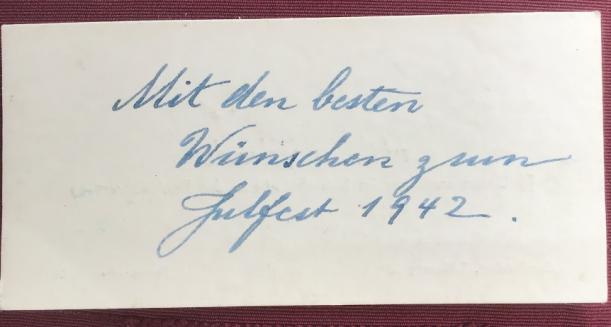 Mit den besten
Wünschen zum
Julfest 1942.